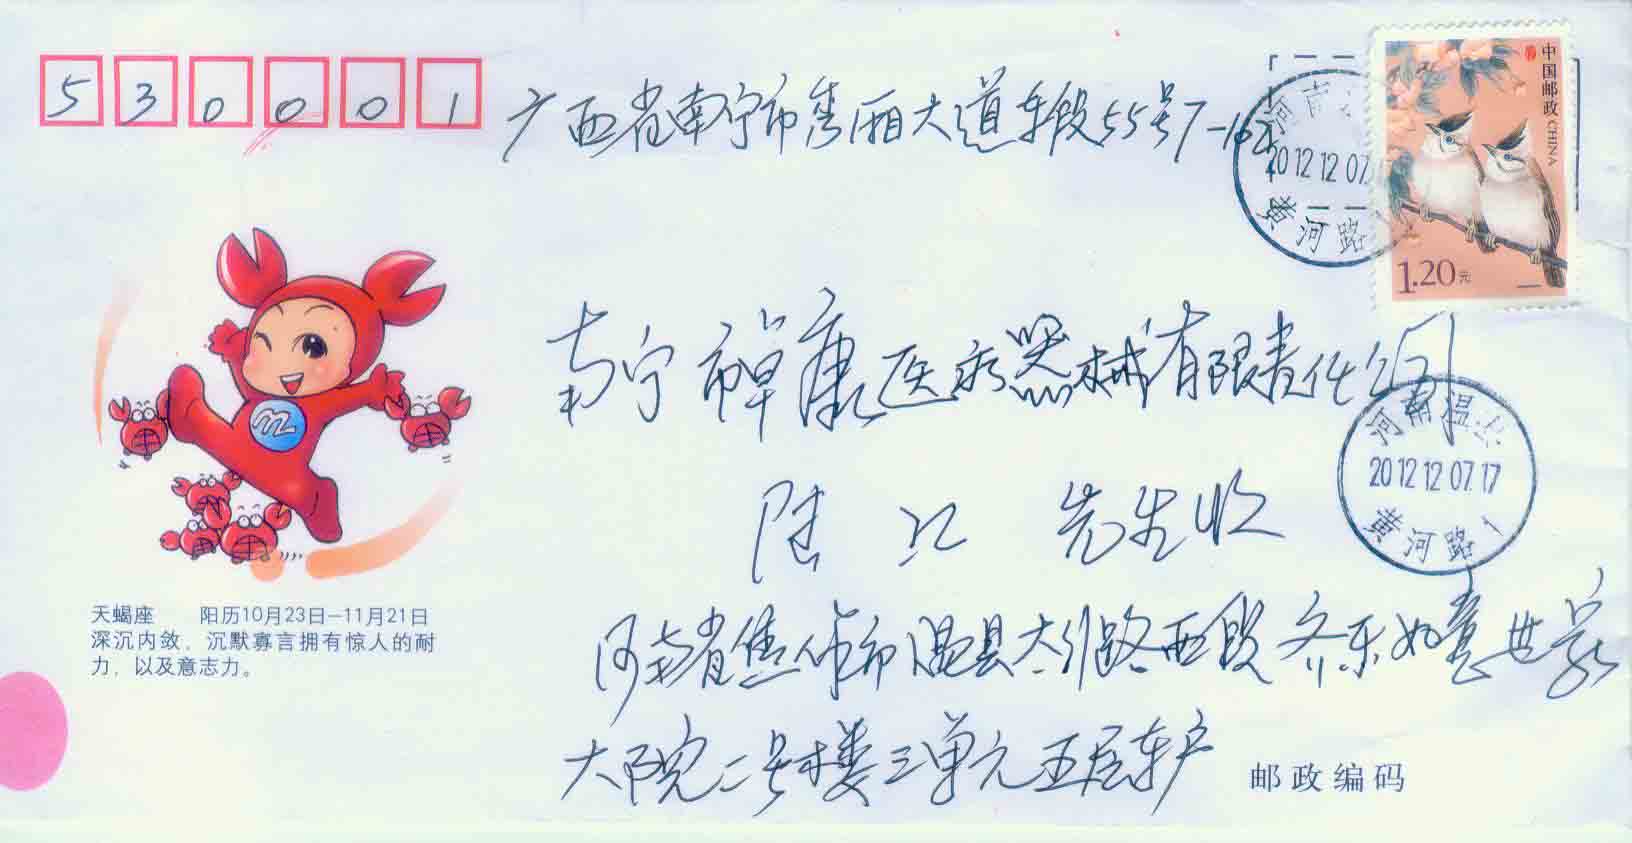 530001
广西省南宁市秀厢大道东段55号7-102
中国邮政 CHINA
1.20元
河南
2012 12 07
黄河路
南宁市卓康医疗器械有限责任公司
陆江 先生收
河南温
2012 12 07.17
黄河路
河南省焦作市温县太行路西段齐乐如意世家
大院二号楼三单元五层东户
邮政编码
天蝎座 阳历10月23日-11月21日
深沉内敛，沉默寡言拥有惊人的耐
力，以及意志力。